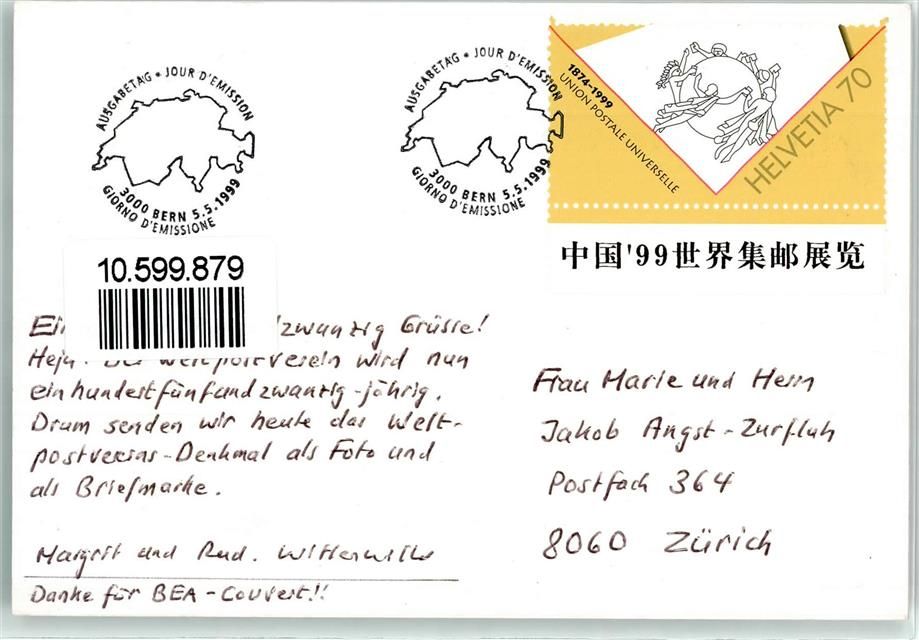 AUSGABETAG • JOUR D'EMISSION
3000 BERN 5.5.1999
GIORNO D'EMISSIONE
AUSGABETAG • JOUR D'EMISSION
3000 BERN 5.5.1999
GIORNO D'EMISSIONE
1874–1999
UNION POSTALE UNIVERSELLE
HELVETIA 70
中国'99世界集邮展览
10.599.879
zwanzig Grüsse!
Weltpostverein wird nun
einhundertfünfundzwanzig-jährig.
Drum senden wir heute das Welt-
postvereins-Denkmal als Foto und
als Briefmarke.
Margrit und Rud.
Danke für BEA-Couvert!!
Frau Marie und Herrn
Jakob Angst-Zurfluh
Postfach 364
8060 Zürich